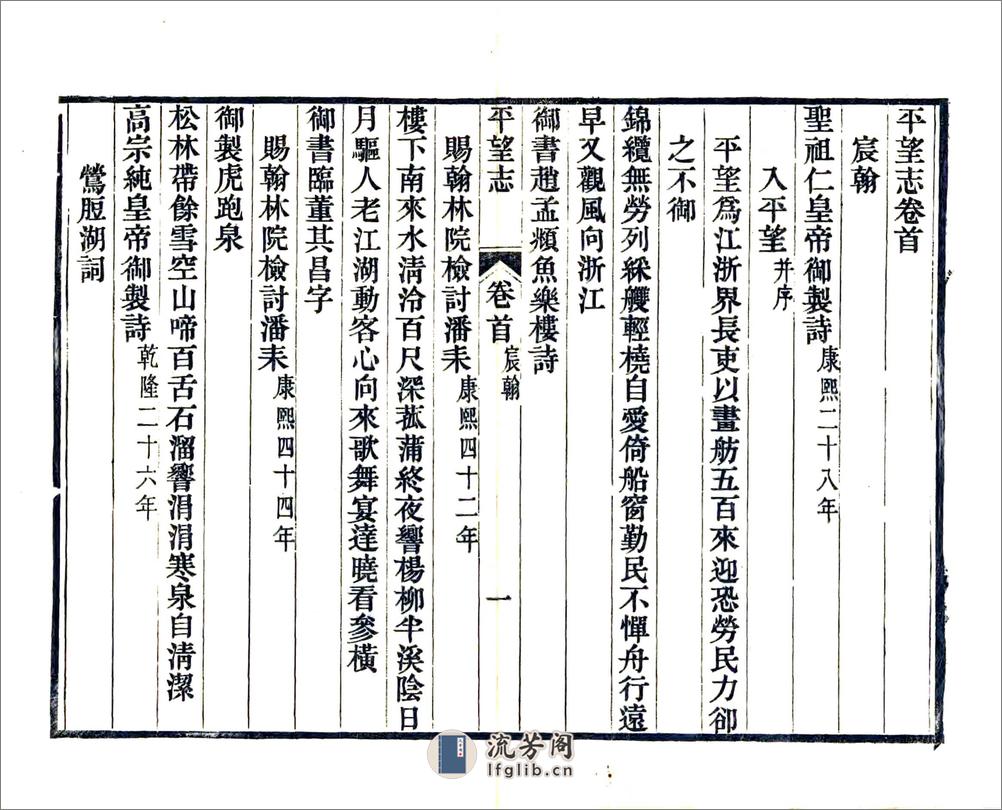 平望志卷首
宸翰
聖祖仁皇帝御製詩康熙二十八年
入平望并序
平望爲江浙界長吏以畫舫五百來迎恐勞民力卻
之不御
錦纜無勞列綵艭輕橈自愛倚船窗勤民不憚舟行遠
早又觀風向浙江
御書趙孟頫魚樂樓詩
平望志 卷首宸翰 一
賜翰林院檢討潘耒康熙四十二年
樓下南來水清泠百尺深菰蒲終夜響楊柳半溪陰日
月驅人老江湖動客心向來歌舞宴達曉看參橫
御書臨董其昌字
賜翰林院檢討潘耒康熙四十四年
御製虎跑泉
松林帶餘雪空山啼百舌石溜響涓涓寒泉自清潔
高宗純皇帝御製詩乾隆二十六年
鶯脰湖詞
流芳阁
lfglib.cn